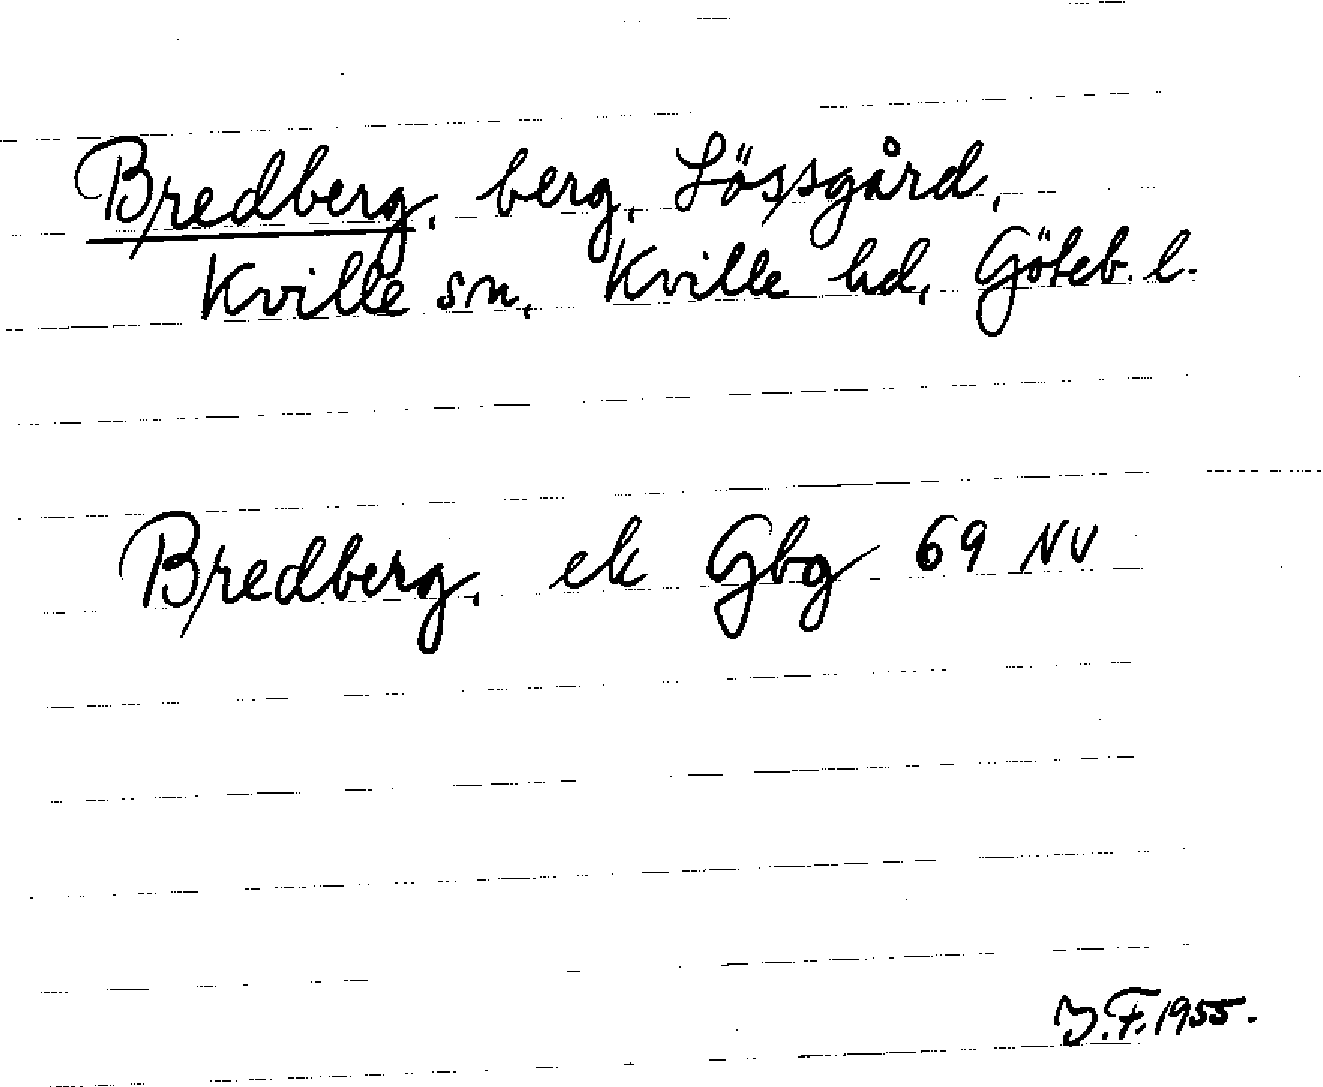 Bredberg, berg, Lössgård,
Kville sn, Kville hd, Göteb. l.
Bredberg, ek Gbg 69 NV
J.F. 1955.